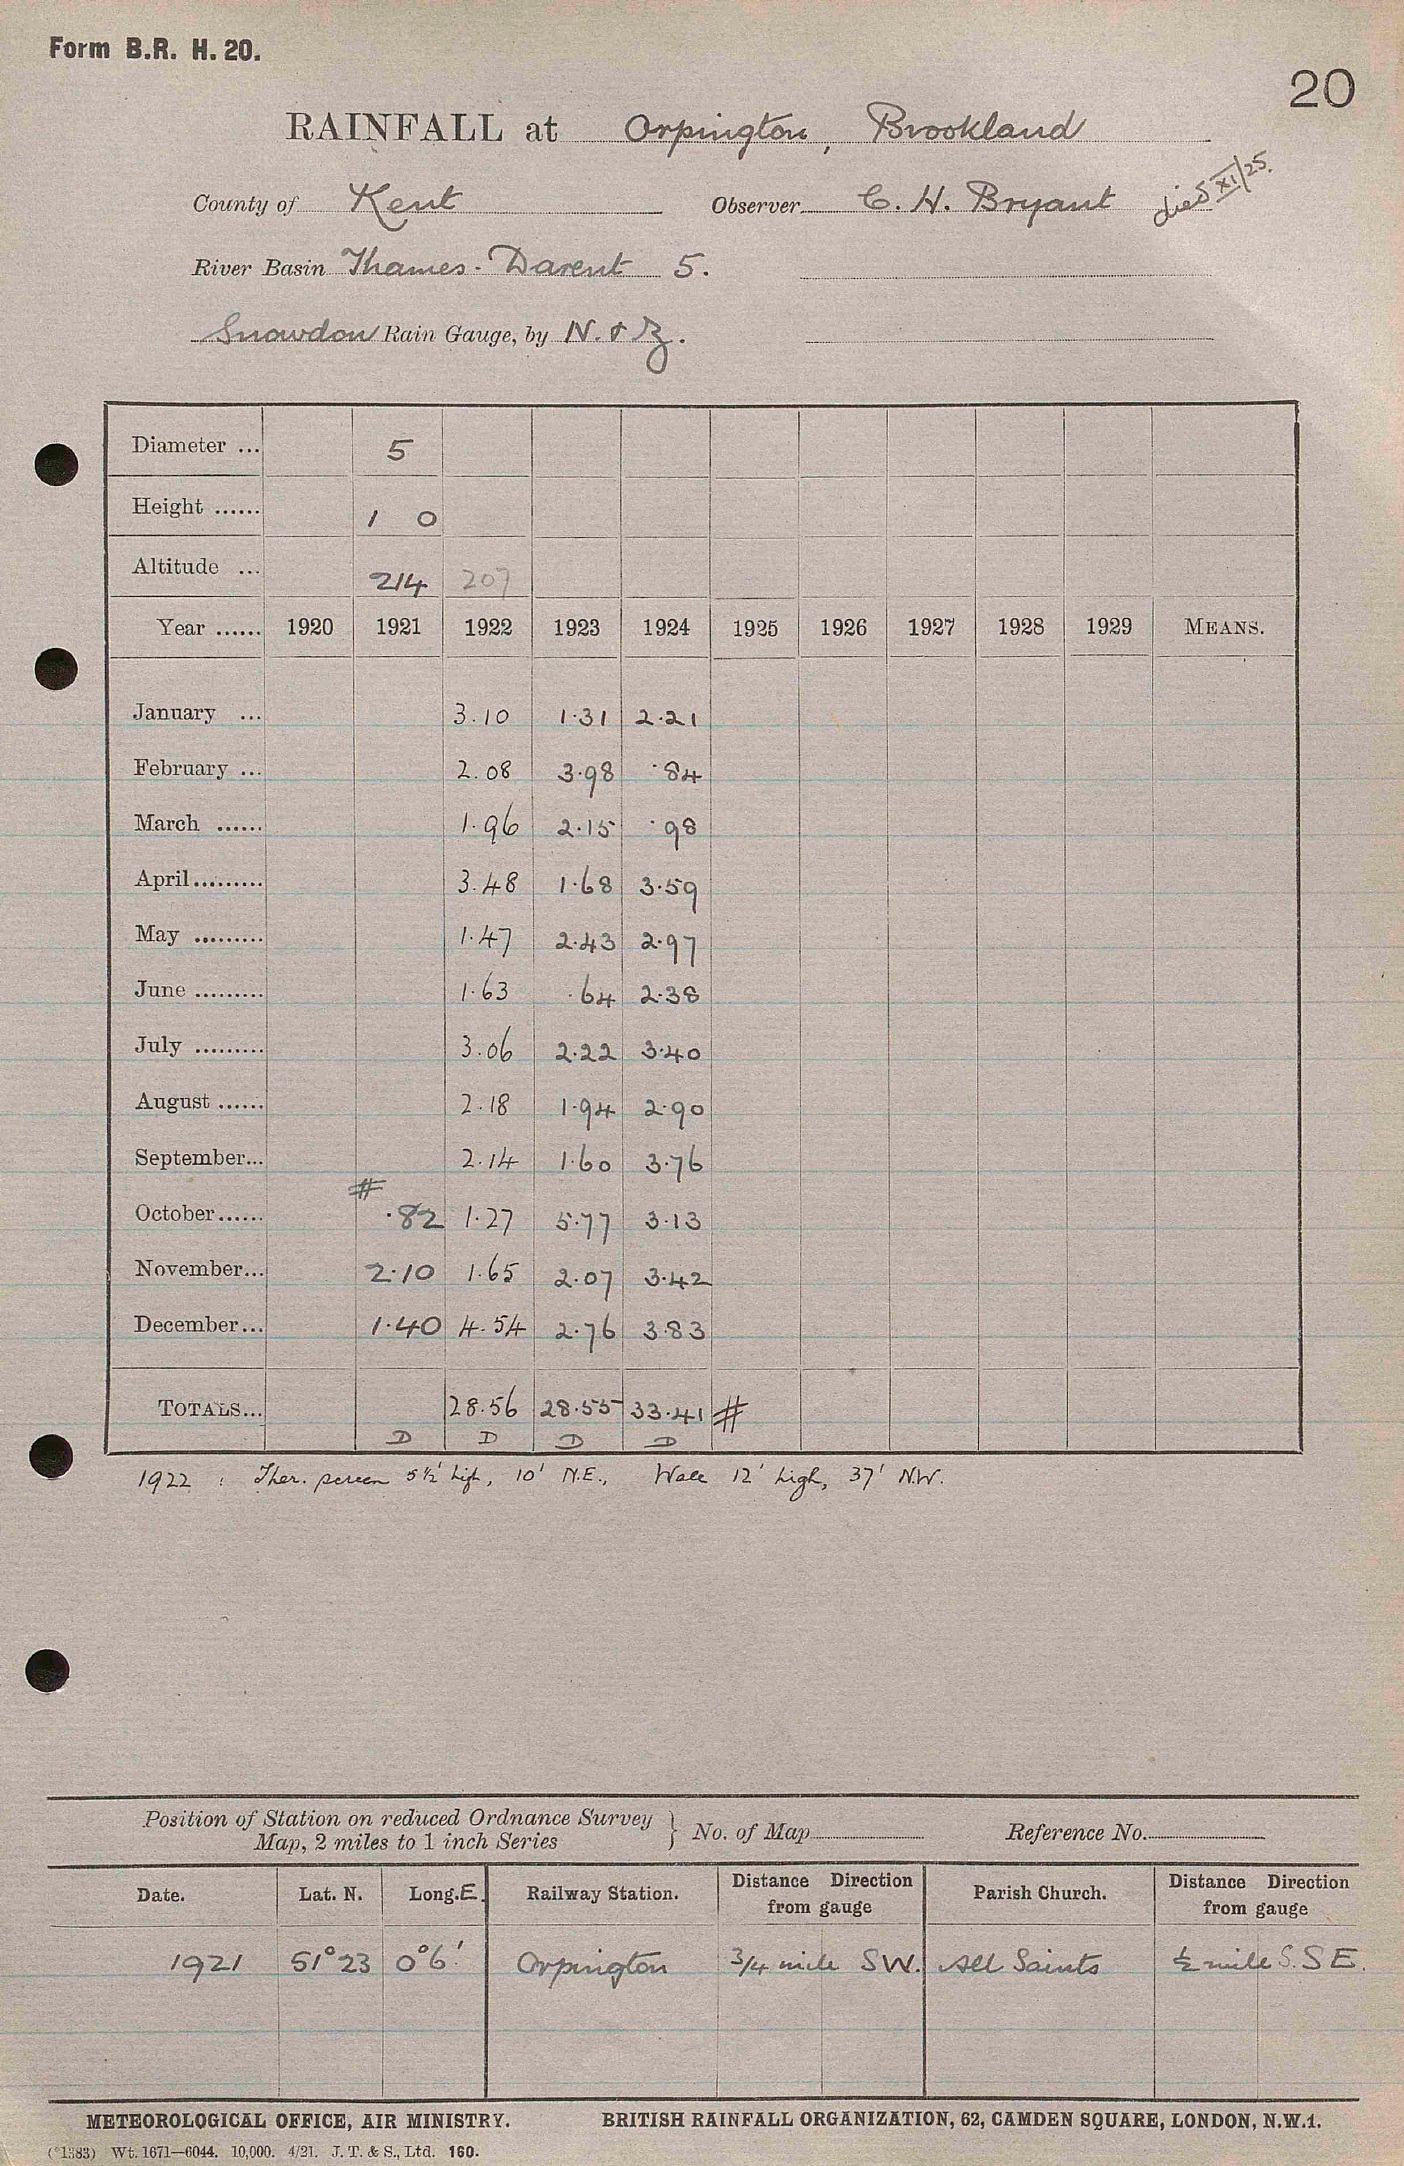 Form B.R. H. 20.
20
RAINFALL at Orpington, Brookland
County of Kent Observer C. H. Bryant died XI/25.
River Basin Thames - Darent 5.
Snowdon Rain Gauge, by N. & Z.
Diameter ... 5
Height ...... 1 0
Altitude ... 214 207
Year ...... 1920 1921 1922 1923 1924 1925 1926 1927 1928 1929 MEANS.
January ... 3.10 1.31 2.21
February ... 2.08 3.98 .84
March ...... 1.96 2.15 .98
April ......... 3.48 1.68 3.59
May ......... 1.47 2.43 2.97
June ......... 1.63 .64 2.38
July ......... 3.06 2.22 3.40
August ...... 2.18 1.94 2.90
September... 2.14 1.60 3.76
#
October ...... .82 1.27 5.77 3.13
November... 2.10 1.65 2.07 3.42
December... 1.40 4.54 2.76 3.83
TOTALS... 28.56 28.55 33.41 #
D D D D
1922 : Ther. screen 5½' high, 10' N.E., Wall 12' high, 37' N.W.
Position of Station on reduced Ordnance Survey
Map, 2 miles to 1 inch Series } No. of Map Reference No.
Date. Lat. N. Long. E. Railway Station. Distance Direction from gauge Parish Church. Distance Direction from gauge
1921 51°23 0°6' Orpington 3/4 mile SW. All Saints ½ mile S.S E.
METEOROLOGICAL OFFICE, AIR MINISTRY. BRITISH RAINFALL ORGANIZATION, 62, CAMDEN SQUARE, LONDON, N.W.1.
(*1383) Wt. 1671—6044. 10,000. 4/21. J. T. & S., Ltd. 160.